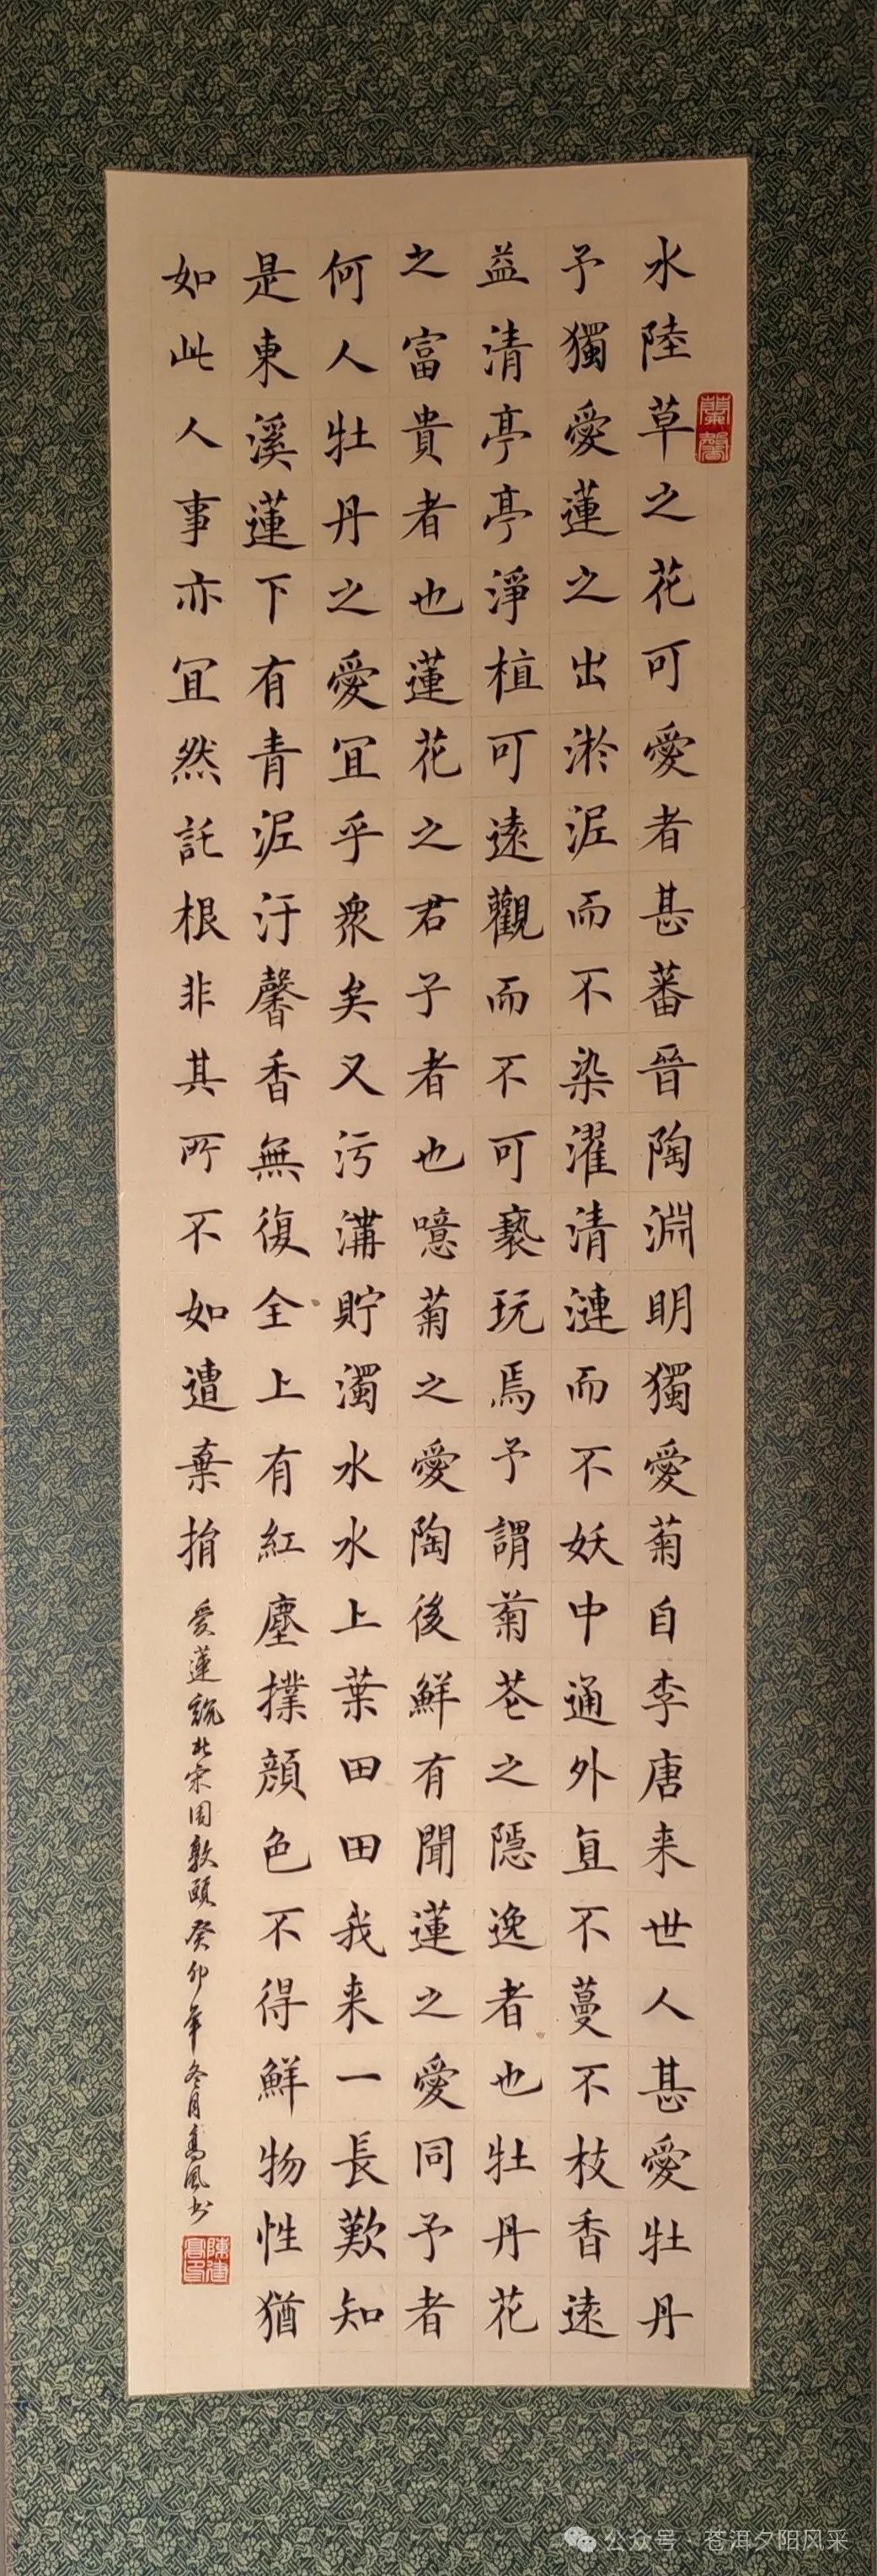 水陸草之花可愛者甚蕃晉陶淵明獨愛菊自李唐来世人甚愛牡丹
予獨愛蓮之出淤泥而不染濯清漣而不妖中通外直不蔓不枝香遠
益清亭亭淨植可遠觀而不可褻玩焉予謂菊花之隱逸者也牡丹花
之富貴者也蓮花之君子者也噫菊之愛陶後鮮有聞蓮之愛同予者
何人牡丹之愛宜乎衆矣又污溝貯濁水水上葉田田我来一長歎知
是東溪蓮下有青泥汙馨香無復全上有紅塵撲顔色不得鮮物性猶
如此人事亦宜然託根非其所不如遭棄捐
愛蓮說北宋周敦頤癸卯年冬月高风书
公众号·苍洱夕阳风采